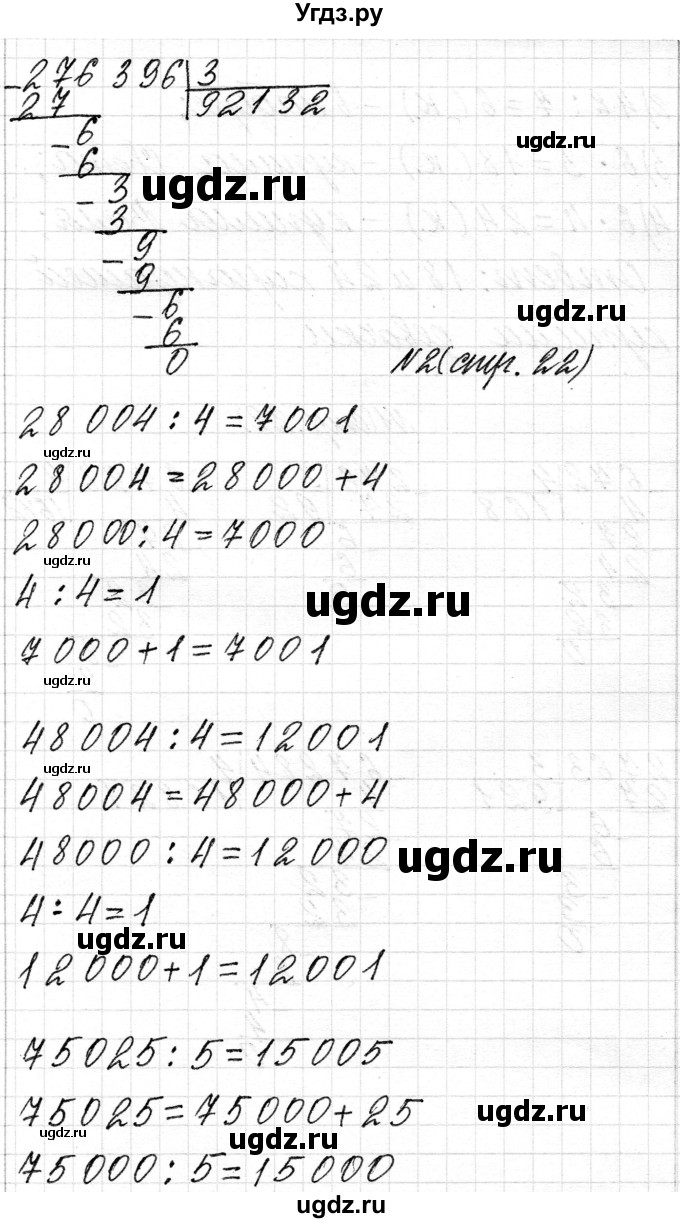 Угдз.ру
276 396 3
27 92132
6
6
ugdz.ru
ugdz.ru
3
3
9
9
ugdz.ru
6
6
0
N2(стр. 22)
28 004 : 4 = 7001
ugdz.ru
28004 = 28000 + 4
28000 : 4 = 7000
ugdz.ru
4 : 4 = 1
ugdz.ru
7000 + 1 = 7001
ugdz.ru
48004 : 4 = 12001
ugdz.ru
48004 = 48000 + 4
48000 : 4 = 12000
ugdz.ru
4 : 4 = 1
ugdz.ru
12000 + 1 = 12001
75025 : 5 = 15005
75025 = 75000 + 25
ugdz.ru
ugdz.ru
ugdz.ru
75000 : 5 = 15000
ugdz.ru